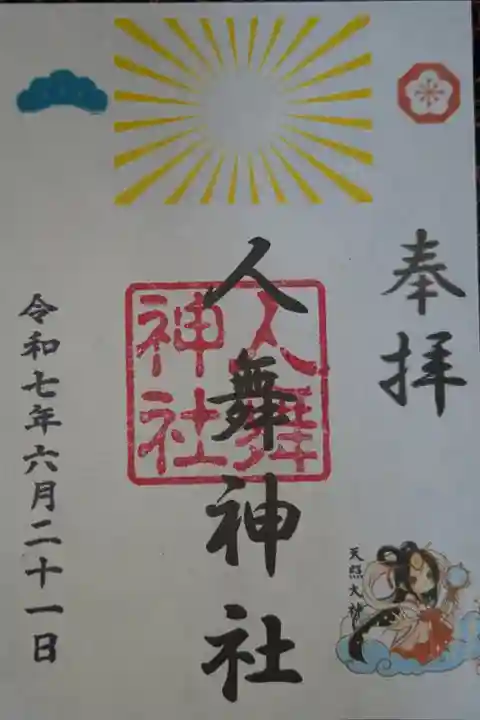 奉拝
人舞神社
人舞
神社
令和七年六月二十一日
天照大神